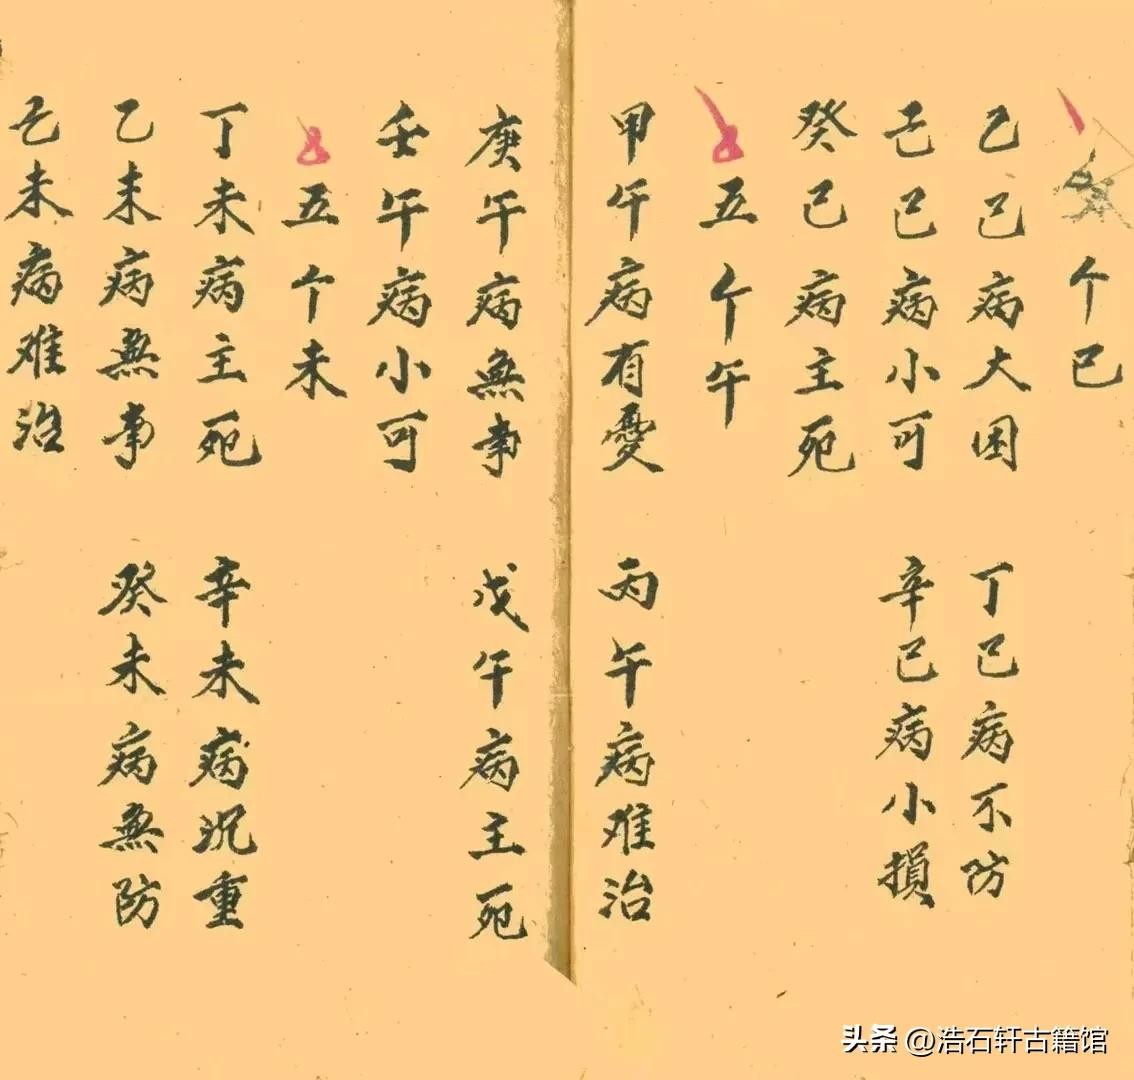 个巳
乙巳病大困 丁巳病不防
己巳病小可 辛巳病小損
癸巳病主死
五个午
甲午病有憂 丙午病难治
庚午病無事 戊午病主死
壬午病小可
五个未
丁未病主死 辛未病沉重
乙未病無事 癸未病無防
己未病难治
头条 @浩石轩古籍馆